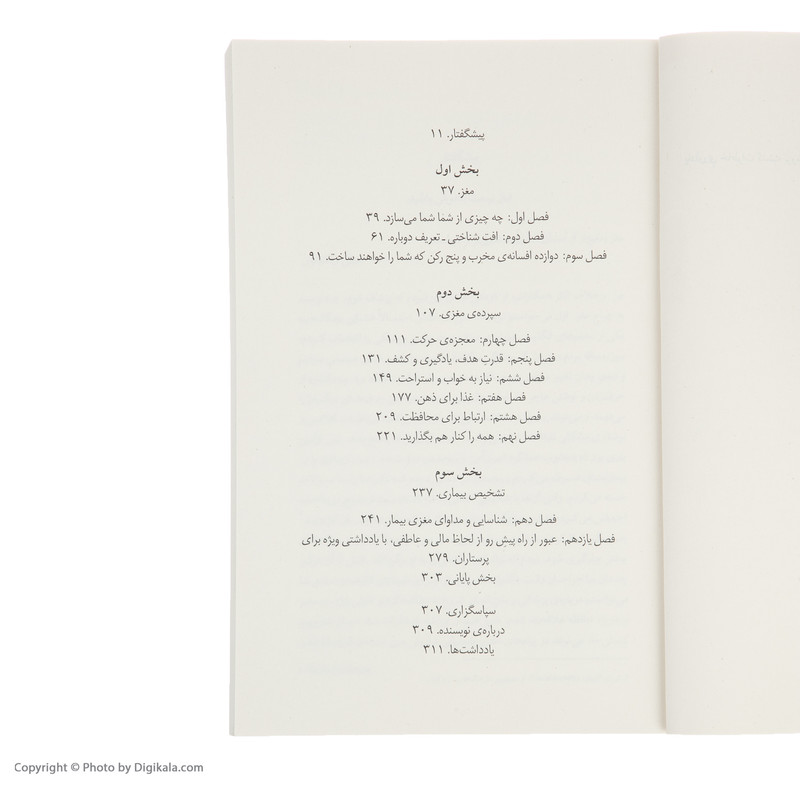 پیشگفتار. ۱۱
بخش اول
مغز. ۳۷
فصل اول: چه چیزی از شما شما می‌سازد. ۳۹
فصل دوم: افت شناختی ـ تعریف دوباره. ۶۱
فصل سوم: دوازده افسانه‌ی مخرب و پنج رکن که شما را خواهند ساخت. ۹۱
بخش دوم
سپرده‌ی مغزی. ۱۰۷
فصل چهارم: معجزه‌ی حرکت. ۱۱۱
فصل پنجم: قدرتِ هدف، یادگیری و کشف. ۱۳۱
فصل ششم: نیاز به خواب و استراحت. ۱۴۹
فصل هفتم: غذا برای ذهن. ۱۷۷
فصل هشتم: ارتباط برای محافظت. ۲۰۹
فصل نهم: همه را کنار هم بگذارید. ۲۲۱
بخش سوم
تشخیص بیماری. ۲۳۷
فصل دهم: شناسایی و مداوای مغزی بیمار. ۲۴۱
فصل یازدهم: عبور از راه پیشِ رو از لحاظ مالی و عاطفی، با یادداشتی ویژه برای
پرستاران. ۲۷۹
بخش پایانی. ۳۰۳
سپاسگزاری. ۳۰۷
درباره‌ی نویسنده. ۳۰۹
یادداشت‌ها. ۳۱۱
Copyright © Photo by Digikala.com